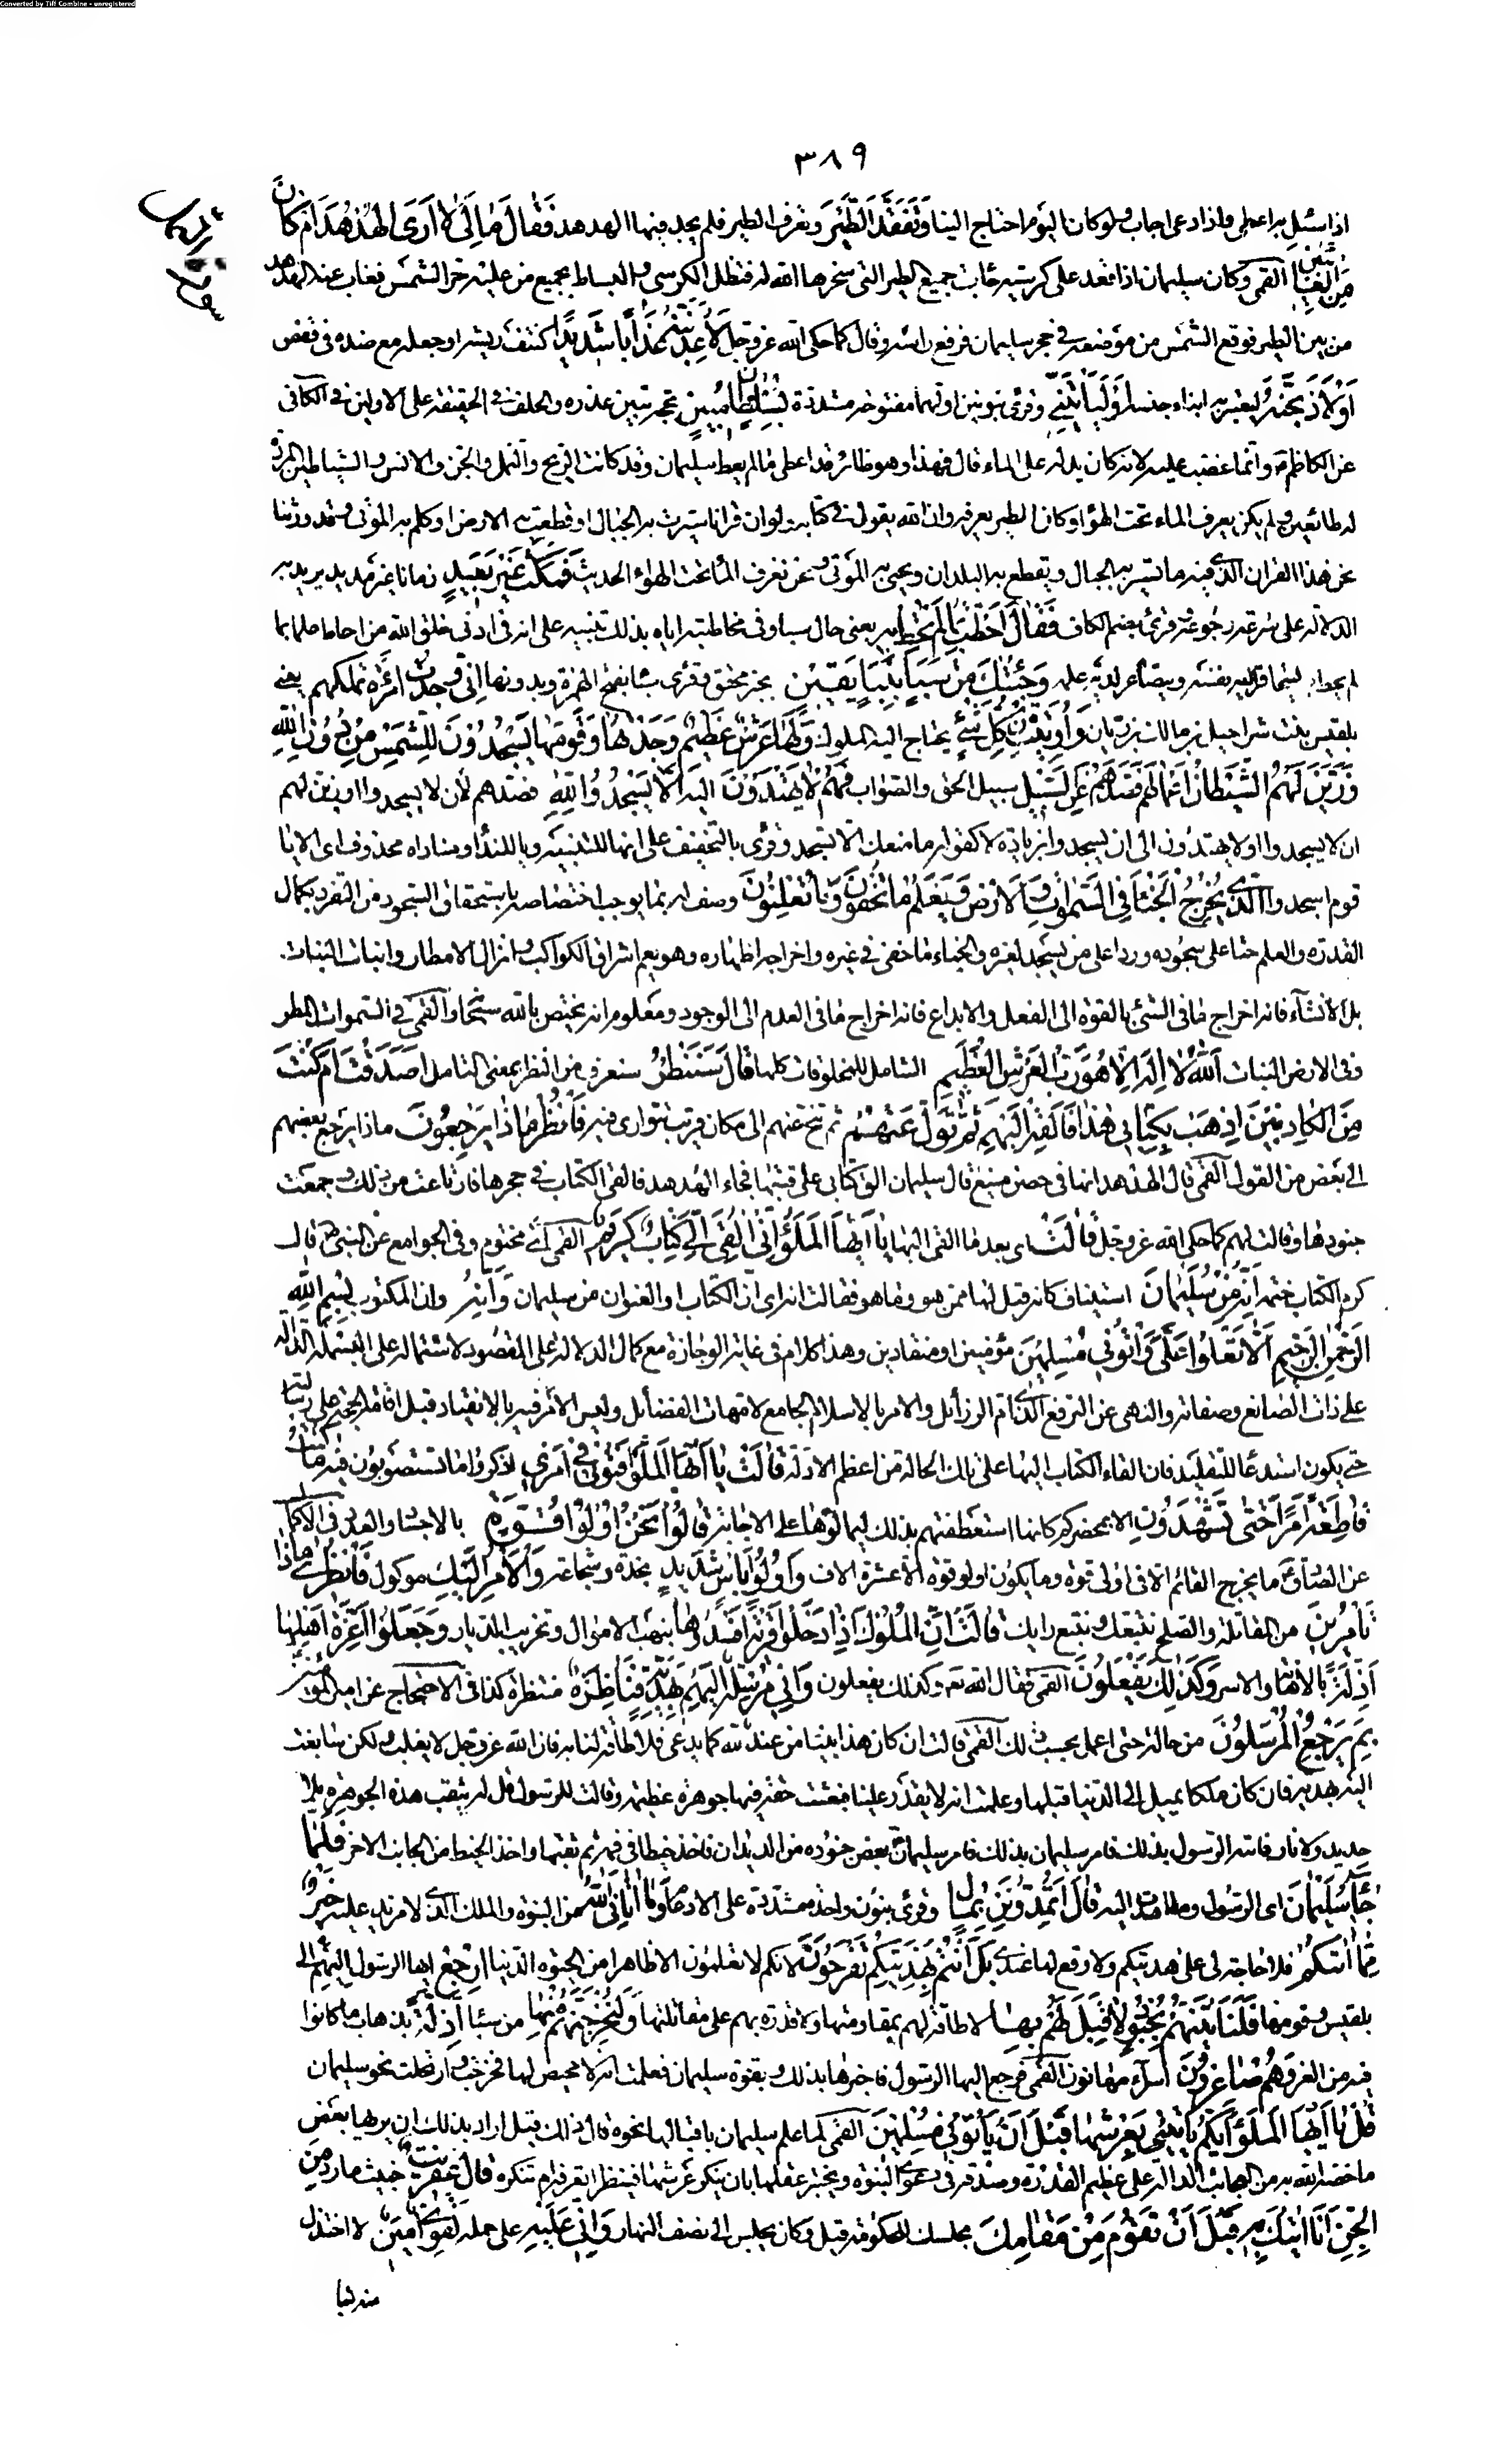 Converted by Tiff Combine - unregistered
٣٨٩
اذا سئل به اعطى واذا دعى اجاب ولو كان اليوم احتاج الينا وَتَفَقَّدَ الطَّيْرَ وتعرف الطير فلم يجد فيها الهدهد فَقَالَ مَا لِيَ لَا أَرَى الْهُدْهُدَ أَمْ كَانَ
مِنَ الْغَائِبِينَ القمى وكان سليمان اذا قعد على كرسيه جاءت جميع الطير التى سخرها الله له فتظل الكرسى والبساط بجميع من عليه من الشمس فغاب عنه الهدهد
من بين الطير فوقع الشمس من موضعه في حجر سليمان فرفع راسه وقال كما حكى الله عز وجل لَأُعَذِّبَنَّهُ عَذَابًا شَدِيدًا كنتف ريشه او جعله مع ضده فى قفص
أَوْ لَأَذْبَحَنَّهُ ليعتبر به ابناء جنسه أَوْ لَيَأْتِيَنِّي وقرئ بنونين اولهما مفتوحة مشددة بِسُلْطَانٍ مُبِينٍ بحجة تبين عذره والحلف في الحقيقة على الاولين في الكافى
عن الكاظم ع وانما غضب عليه لانه كان يدله على الماء قال فهذا وهو طائر قد اعطى ما لم يعط سليمان وقد كانت الريح والنمل والجن والانس والشياطين المردة
له طائعين ولم يكن يعرف الماء تحت الهواء وكان الطير يعرفه وان الله يقول في كتابه ولو ان قرانا سيرت به الجبال او قطعت به الارض او كلم به الموتى وقد ورثنا
نحن هذا القران الذى فيه ما تسير به الجبال ويقطع به البلدان ويحيى به الموتى ونحن نعرف الماء تحت الهواء الحديث فَمَكَثَ غَيْرَ بَعِيدٍ زمانا غير مديد يريد به
الدلالة على سرعة رجوعه وقرئ بضم الكاف فَقَالَ أَحَطْتُ بِمَا لَمْ تُحِطْ بِهِ يعنى حال سبا وفى مخاطبته اياه بذلك تنبيه على انه فى ادنى خلق الله من احاط علما بما
لم يحط به ليتحاقر اليه نفسه ويتصاغر لديه علمه وَجِئْتُكَ مِنْ سَبَإٍ بِنَبَإٍ يَقِينٍ بخبر محقق وقرئ سبا بفتح الهمزة وبدونها إِنِّي وَجَدْتُ امْرَأَةً تَمْلِكُهُمْ يعنى
بلقيس بنت شراحيل بن مالك بن ريان وَأُوتِيَتْ مِنْ كُلِّ شَيْءٍ يحتاج اليه الملوك وَلَهَا عَرْشٌ عَظِيمٌ وَجَدْتُهَا وَقَوْمَهَا يَسْجُدُونَ لِلشَّمْسِ مِنْ دُونِ اللَّهِ
وَزَيَّنَ لَهُمُ الشَّيْطَانُ أَعْمَالَهُمْ فَصَدَّهُمْ عَنِ السَّبِيلِ سبيل الحق والصواب فَهُمْ لَا يَهْتَدُونَ اليه أَلَّا يَسْجُدُوا لِلَّهِ فصدهم لأن لا يسجدوا او زين لهم
ان لا يسجدوا او لا يهتدون الى ان يسجدوا بزيادة لا كقوله ما منعك الا تسجد وقرئ بالتخفيف على انها للتنبيه ويا للنداء ومناداه محذوف اى الا يا
قوم اسجدوا الَّذِي يُخْرِجُ الْخَبْءَ فِي السَّمَوَاتِ وَالْأَرْضِ وَيَعْلَمُ مَا تُخْفُونَ وَمَا تُعْلِنُونَ وصف له بما يوجب اختصاصه باستحقاق السجود من التفرد بكمال
القدرة والعلم حثا على سجوده وردا على من يسجد لغيره والخباء ما خفى في غيره واخراجه اظهاره وهو يعم اشراق الكواكب وانزال الامطار وانبات النبات
بل الانشاء فانه اخراج ما فى الشئ بالقوة الى الفعل والابداع فانه اخراج ما فى العدم الى الوجود ومعلوم انه يختص بالله سبحانه القمى في السموات المطر
وفى الارض النبات اللَّهُ لَا إِلَهَ إِلَّا هُوَ رَبُّ الْعَرْشِ الْعَظِيمِ الشامل للمخلوقات كلها قَالَ سَنَنْظُرُ سنعرف من النظر بمعنى التامل أَصَدَقْتَ أَمْ كُنْتَ
مِنَ الْكَاذِبِينَ اذْهَبْ بِكِتَابِي هَذَا فَأَلْقِهْ إِلَيْهِمْ ثُمَّ تَوَلَّ عَنْهُمْ ثم تنح عنهم الى مكان قريب تتوارى فيه فَانْظُرْ مَاذَا يَرْجِعُونَ ماذا يرجع بعضهم
الى بعض من القول القمى قال الهدهد انها فى حصن منيع قال سليمان الق كتابى على قبتها فجاء الهدهد فالقى الكتاب في حجرها فارتاعت من ذلك وجمعت
جنودها وقالت لهم كما حكى الله عز وجل قَالَتْ اى بعد ما القى اليها يَا أَيُّهَا الْمَلَؤُا إِنِّي أُلْقِيَ إِلَيَّ كِتَابٌ كَرِيمٌ القمى اى مختوم وفى الجوامع عن النبى ص قال
كرم الكتاب ختمه إِنَّهُ مِنْ سُلَيْمَانَ استيناف كانه قيل لها ممن هو وما هو فقالت انه اى ان الكتاب او العنوان من سليمان وَإِنَّهُ وان المكتوب بِسْمِ اللَّهِ
الرَّحْمَنِ الرَّحِيمِ أَلَّا تَعْلُوا عَلَيَّ وَأْتُونِي مُسْلِمِينَ مؤمنين او منقادين وهذا كلام فى غاية الوجازة مع كمال الدلالة على المقصود لاشتماله على البسملة الدالة
على ذات الصانع وصفاته والنهى عن الترفع الذى ام الرزائل والامر بالاسلام الجامع لامهات الفضائل وليس الامر فيه بالانقياد قبل اقامة الحجة على رسالته
حتى يكون استدعاء للتقليد فان القاء الكتاب اليها على تلك الحالة من اعظم الادلة قَالَتْ يَا أَيُّهَا الْمَلَؤُا أَفْتُونِي فِي أَمْرِي اذكروا ما تستصوبون فيه مَا كُنْتُ
قَاطِعَةً أَمْرًا حَتَّى تَشْهَدُونِ الا بمحضركم كانها استعطفتهم بذلك ليمالؤها على الاجابة قَالُوا نَحْنُ أُولُوا قُوَّةٍ بالاجساد والعدد فى الاكمال
عن الصادق ع ما يخرج القائم الا فى اولى قوة وما يكون اولو قوة الا عشرة الاف وَأُولُوا بَأْسٍ شَدِيدٍ نجدة وشجاعة وَالْأَمْرُ إِلَيْكِ موكول فَانْظُرِي مَاذَا
تَأْمُرِينَ من المقاتلة والصلح نتبعك ونتبع رايك قَالَتْ إِنَّ الْمُلُوكَ إِذَا دَخَلُوا قَرْيَةً أَفْسَدُوهَا بنهب الاموال وتخريب الديار وَجَعَلُوا أَعِزَّةَ أَهْلِهَا
أَذِلَّةً بالاهانة والاسر وَكَذَلِكَ يَفْعَلُونَ القمى فقال الله تعه وكذلك يفعلون وَإِنِّي مُرْسِلَةٌ إِلَيْهِمْ بِهَدِيَّةٍ فَنَاظِرَةٌ منتظرة كذا فى الاحتجاج عن امير المؤمنين
بِمَ يَرْجِعُ الْمُرْسَلُونَ من حاله حتى اعمل بحسب ذلك القمى قالت ان كان هذا نبيا من عند الله كما يدعى فلا طاقة لنا به فان الله عز وجل لا يغلب ولكن سابعث
اليه بهدية فان كان ملكا يميل الى الدنيا قبلها وعلمت انه لا يقدر علينا فبعثت حقة فيها جوهرة عظيمة وقالت للرسول قل له يثقب هذه الجوهرة بلا
حديد ولا نار فاتاه الرسول بذلك فامر سليمان بذلك فامر سليمان بعض جنوده من الديدان فاخذ خيطا فى فمه ثم ثقبها واخذ الخيط من الجانب الاخر فَلَمَّا
جَاءَ سُلَيْمَانَ اى الرسول وما اهدت اليه قَالَ أَتُمِدُّونَنِ بِمَالٍ وقرئ بنون واحدة مشددة على الادغام فَمَا آتَانِيَ اللَّهُ من النبوة والملك الذى لا مزيد عليه خَيْرٌ
مِمَّا آتَاكُمْ فلا حاجة لى على هديتكم ولا وقع لها عندى بَلْ أَنْتُمْ بِهَدِيَّتِكُمْ تَفْرَحُونَ لانكم لا تعلمون الا ظاهرا من الحيوة الدنيا ارْجِعْ ايها الرسول إِلَيْهِمْ الى
بلقيس وقومها فَلَنَأْتِيَنَّهُمْ بِجُنُودٍ لَا قِبَلَ لَهُمْ بِهَا لا طاقة لهم بمقاومتها ولا قدرة بهم على مقاتلتها وَلَنُخْرِجَنَّهُمْ مِنْهَا من سبا أَذِلَّةً بذهاب ما كانوا
فيه من العز وَهُمْ صَاغِرُونَ اسراء مهانون القمى فرجع اليها الرسول فاخبرها بذلك وبقوة سليمان فعلمت انه لا محيص لها فخرجت وارتحلت نحو سليمان
قَالَ يَا أَيُّهَا الْمَلَؤُا أَيُّكُمْ يَأْتِينِي بِعَرْشِهَا قَبْلَ أَنْ يَأْتُونِي مُسْلِمِينَ القمى لما علم سليمان باقبالها نحوه قال ذلك قيل اراد بذلك ان يريها بعض
ما خصه الله به من العجائب الدالة على عظيم القدرة وصدقه فى دعوى النبوة ويختبر عقلها بان ينكر عرشها فينظر اتعرفه ام تنكره قَالَ عِفْرِيتٌ خبيث مارد مِنَ
الْجِنِّ أَنَا آتِيكَ بِهِ قَبْلَ أَنْ تَقُومَ مِنْ مَقَامِكَ مجلسك للحكومة قيل وكان يجلس الى نصف النهار وَإِنِّي عَلَيْهِ على حمله لَقَوِيٌّ أَمِينٌ لا اختزل
منه شيئا